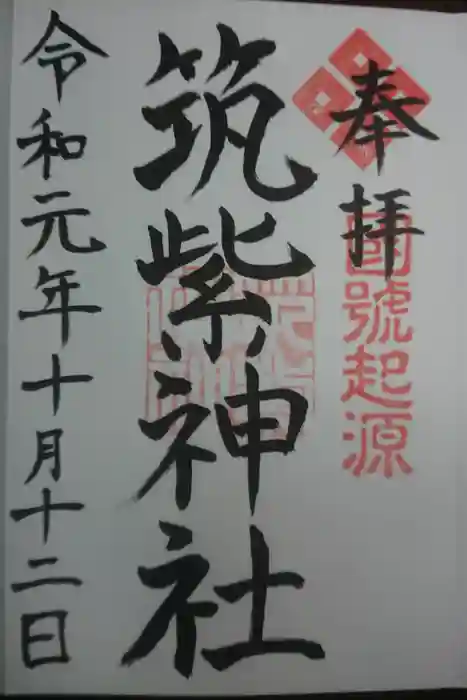 奉拝
國號起源
筑紫神社
令和元年十月十二日